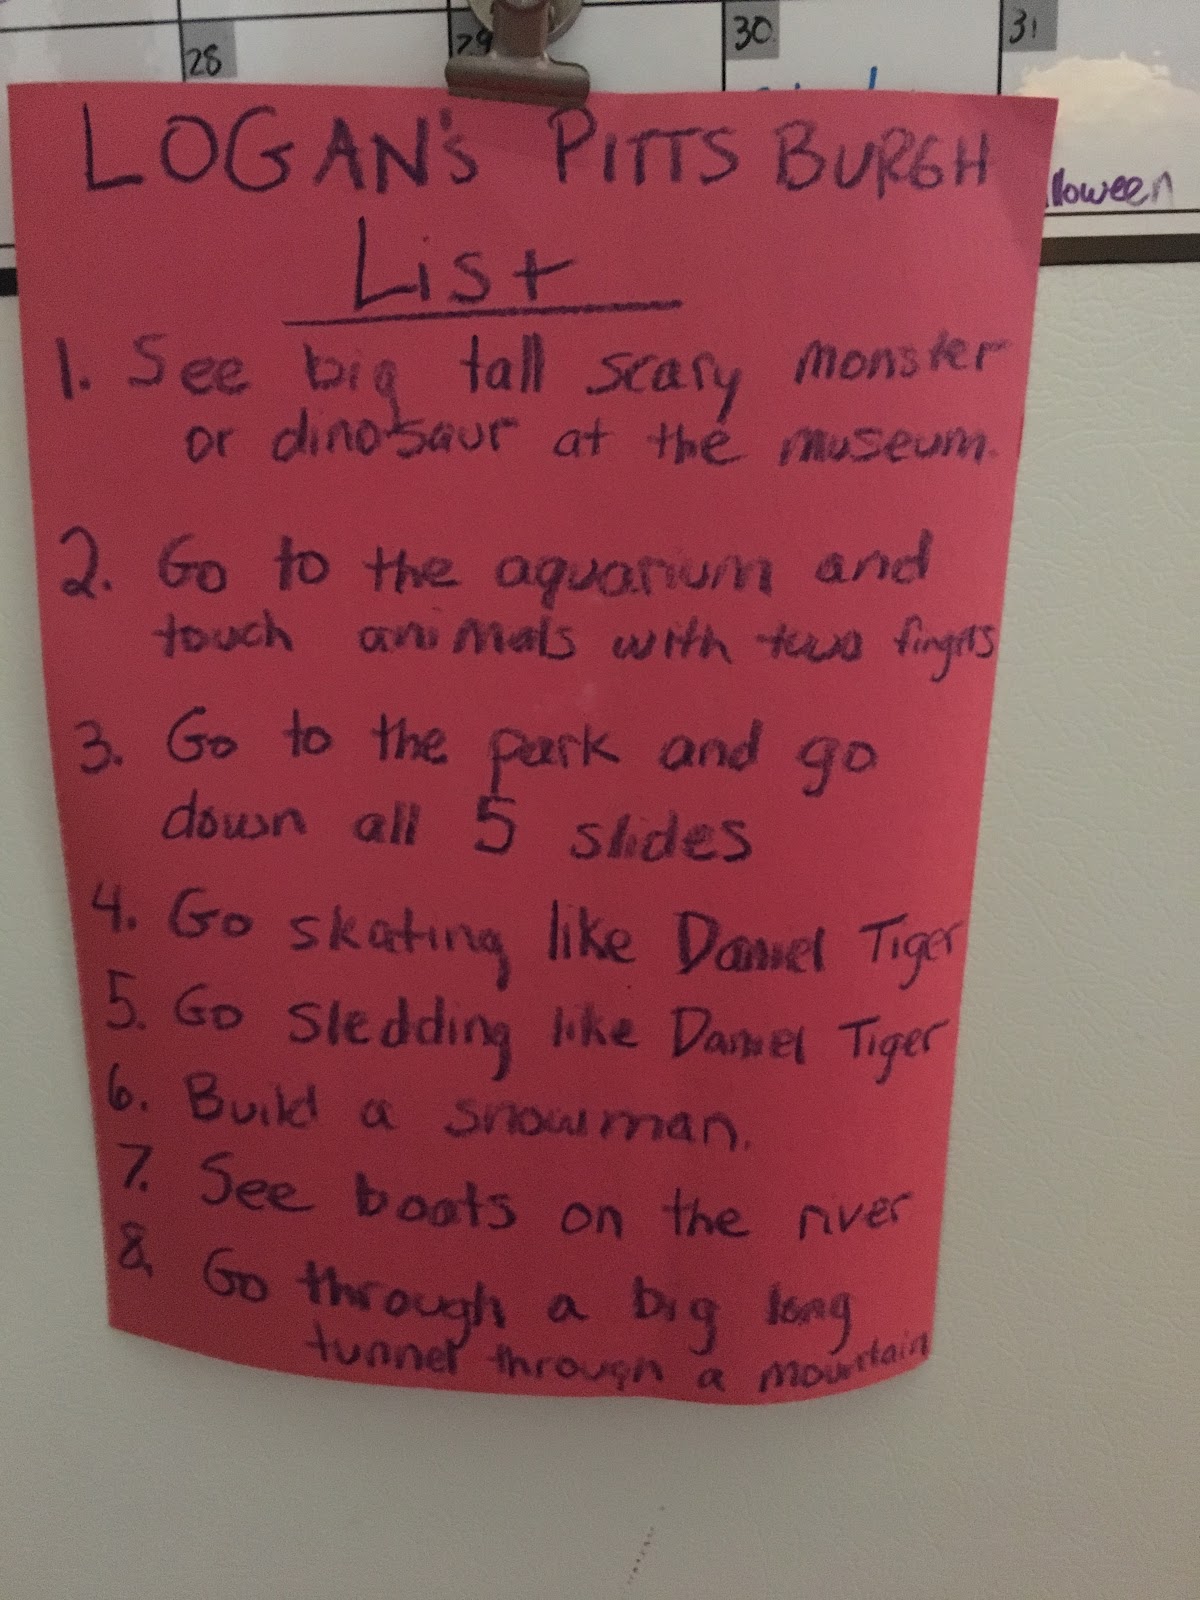 28 29 30 31
lloween
LOGAN's PITTSBURGH
List
1. See big tall scary monster
or dinosaur at the museum.
2. Go to the aquarium and
touch animals with two fingers
3. Go to the park and go
down all 5 slides
4. Go skating like Daniel Tiger
5. Go Sledding like Daniel Tiger
6. Build a snowman.
7. See boats on the river
8. Go through a big long
tunnel through a mountain